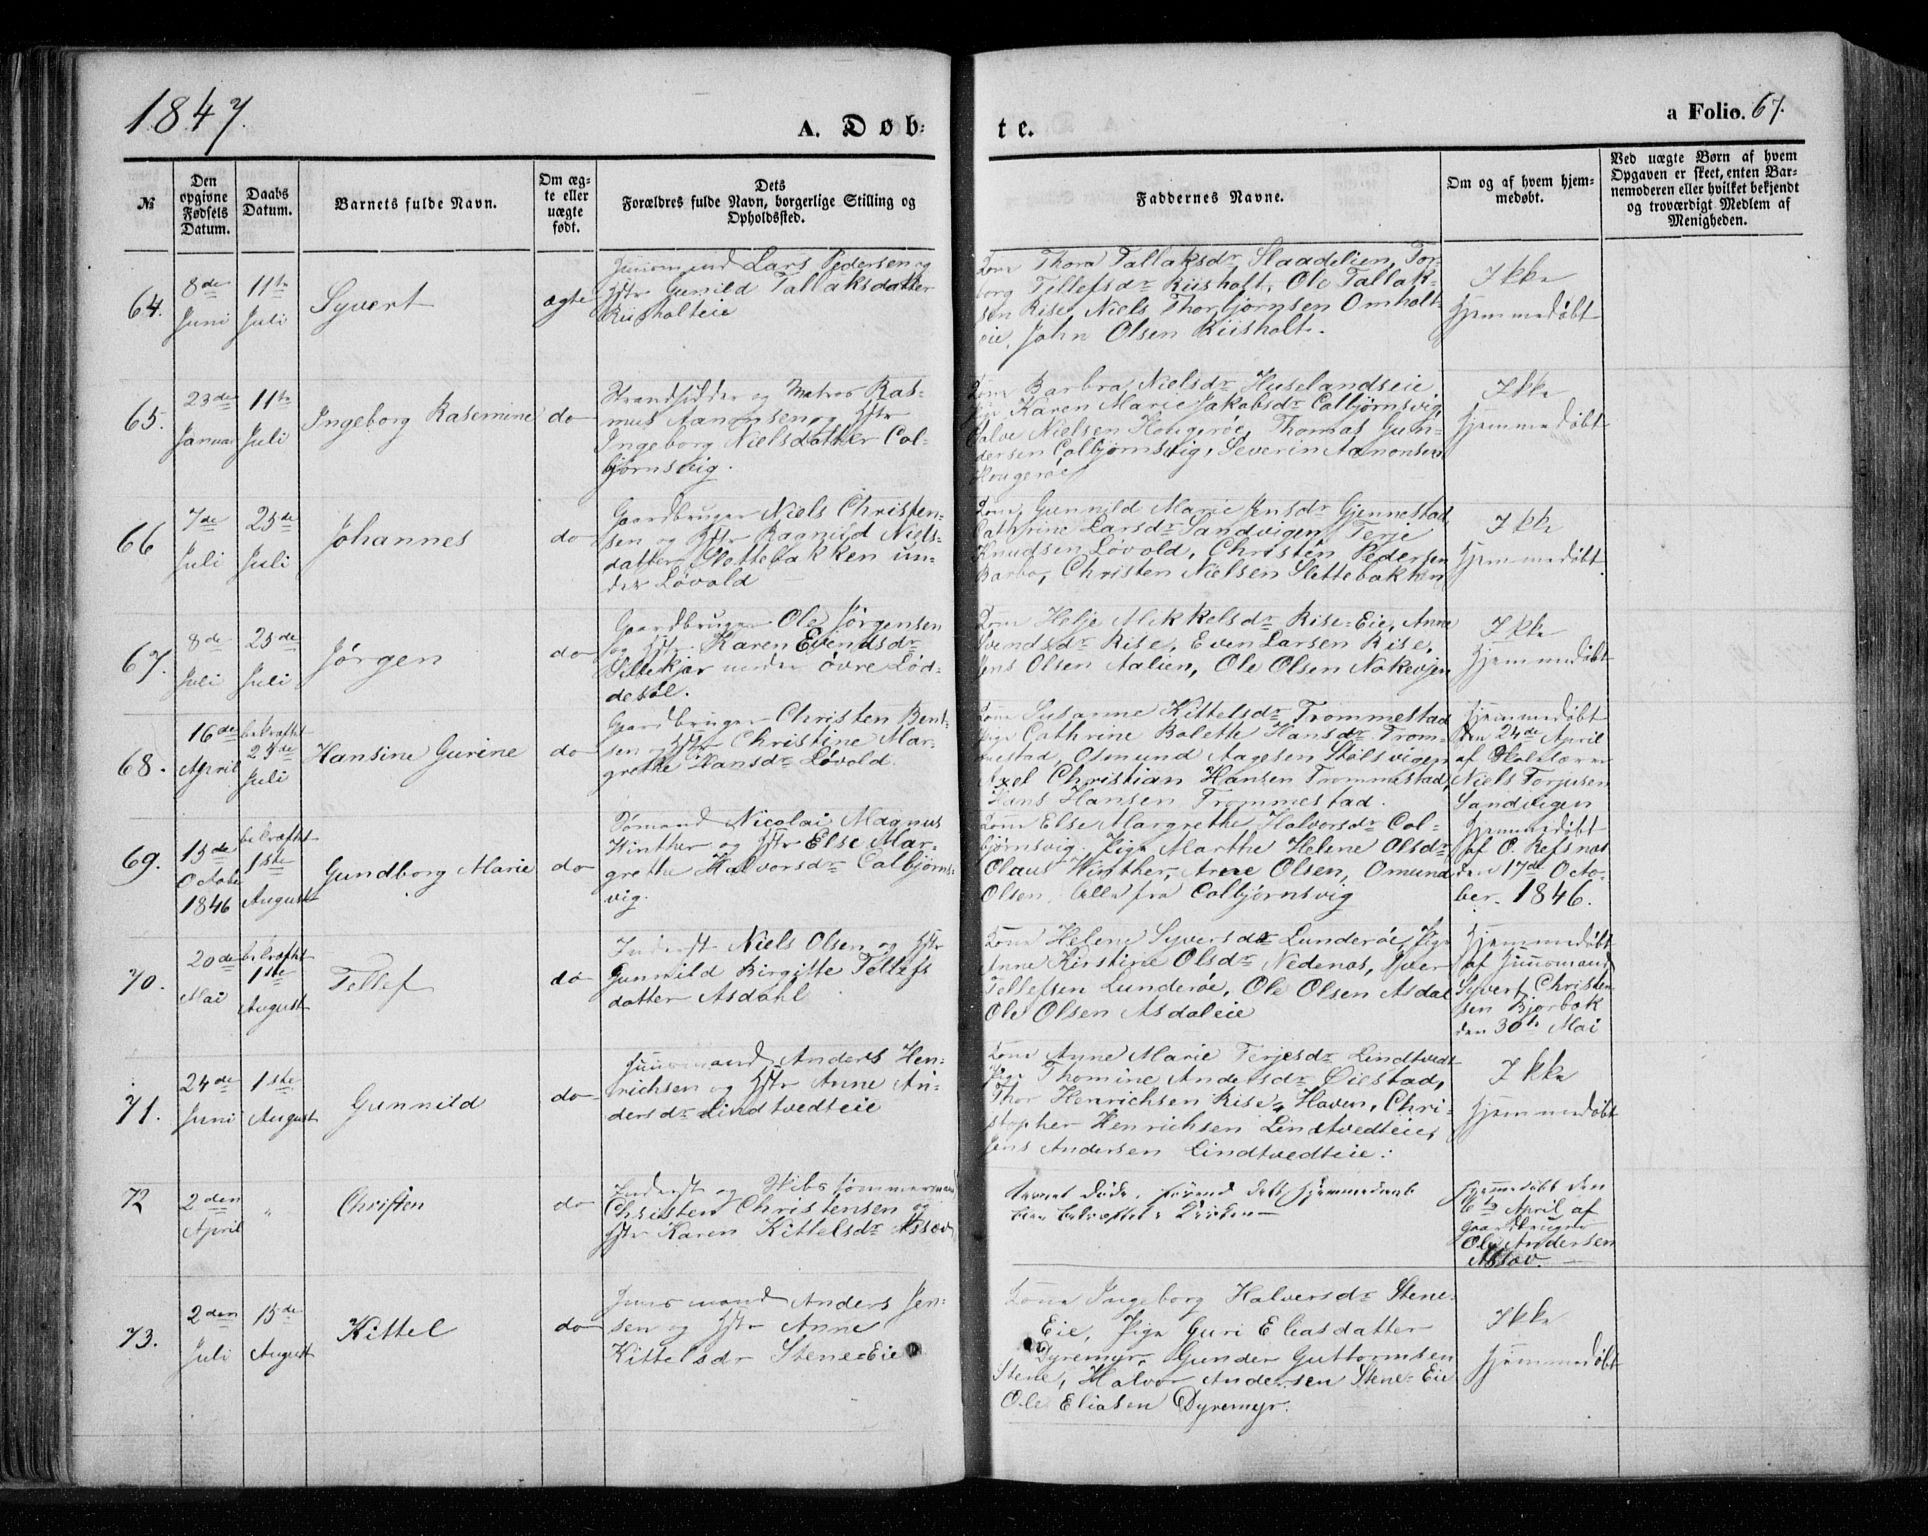 1847.
A. Døb:
te.
a Folio. 67.
№
Den opgivne Fødsels Datum.
Daabs Datum.
Barnets fulde Navn.
Om ægte eller uægte født.
Dets Forældres fulde Navn, borgerlige Stilling og Opholdssted.
Faddernes Navne.
Om og af hvem hjemmedøbt.
Ved uægte Børn af hvem
Opgaven er skeet, enten Bar-
nemoderen eller hvilket bekjendt
og troværdigt Medlem af
Menigheden.
64.
8de Juni
11te Juli
Syvert
ægte
Huusmand Lars Pedersen og
Hstr Gunild Tallaksdatter
Riisholteie
Kone Thora Tallaksdr Slaadelien, Tor-
borg Tellefsdr Riisholt, Ole Tallak-
sen Rise, Niels Thorbjørnsen Omholt-
eie, John Olsen Riisholt.
Ikke
hjemmedøbt
65.
23de Januar
11te Juli
Ingeborg Rasemine
do
Strandsidder og Matros Ras-
mus Aanonsen og Hstr
Ingeborg Nielsdatter Col-
bjørnsvig.
Kone Barbra Nielsdr Huselandseie
Pige Karen Marie Jakobsdr Colbjørnsvig,
Salve Nielsen Hougerøe, Thomas Gun-
dersen Colbjørnsvig, Severin Aanonsen
Hougerøe
Ikke
hjemmedøbt
66
7de Juli
25de Juli
Johannes
do
Gaardbruger Niels Christen-
sen og Hstr Ragnild Niels-
datter Slottebakken un-
der Løvold
Kone Gunnild Marie Jensdr Gjennestad
Cathrine Larsdr Sandvigen, Terje
Knudsen Løvold, Christen Pedersen
Barbo, Christen Nielsen Slettebakken
Ikke
hjemmedøbt.
67.
8de Juli
25de Juli
Jørgen
do
Gaardbruger Ole Jørgensen
og Hstr Karen Evendsdr
under øvre Lød-
desøl.
Kone Helje Mikkelsdr Rise-Eie, Anne
Svendsdr Rise, Even Larsen Rise,
Jens Olsen Aalien, Ole Olsen
Ikke
hjemmedøbt
68.
16de April
bekræftet 25de Juli
Hansine Gurine
do
Gaardbruger Christen Bent-
sen og Hstr Christine Mar-
grethe Hansdr Løvold.
Kone Susanne Kittelsdr Trommestad
Pige Cathrine Bolette Hansdr Trom-
mestad, Osmund Aagesen Stølsvigen
Axel Christian Hansen Trommestad,
Hans Hansen Trommestad.
hjemmedøbt
den 24de April
af Skolelærer
Niels Torjusen
Sandvigen
69.
15de Octobr 1846
bekræftet 1ste August
Gundborg Marie
do
Sømand Nicolai Magnus
Winther og Hstr Else Mar-
grethe Halvorsdr Colbjørns-
vig.
Kone Else Margrethe Halvorsdr Col-
bjørnsvig. Pige Marthe Helene Olsdr
Olaus Winther, Arne Olsen, Omund
Olsen. Alle fra Colbjørnsvig
hjemmedøbt
af O. Refsnæs
den 17de Octo-
ber. 1846.
70.
20de Mai
bekræftet 1ste August
Tellef
do
Inderst Niels Olsen og Hstr
Gunnild Birgitte Tellefs
datter Asdahl
Kone Helene Syversdr Lunderøe, Pige
Anne Kirstine Olsdr Nedenæs, Syver
Tellefsen Lunderøe, Ole Olsen Asdal
Ole Olsen Asdaleie
hjemmedøbt
af Huusmand
Syvert Christen
sen Bjorbæk
den 30te Mai
71.
24de Juni
1ste August
Gunnild
do
Huusmand Anders Hen-
richsen og Hstr Anne An-
dersdr Lindtvedteie
Kone Anne Marie Terjesdr Lindtvedt
Pige Thomine Andersdr Øiestad,
Thor Henrichsen Rise, Haven, Chri-
stopher Henrichsen Lindtvedteie,
Jens Andersen Lindtvedteie.
Ikke
hjemmedøbt
72
2den April
"
Christen
do
Inderst og Skibstømmermand
Christen Christensen og
Hstr Karen Kittelsdr Assæv
Barnet døde, førend dets hjemmedaab
blev bekræftet i Kirken
hjemmedøbt den
6te April af
Gaardbruger
Ole Andersen
Assæv.
73.
2den Juli
15de August
Kittel
do
Huusmand Anders Jen-
sen og Hstr Anne
Kittelsdr Stene-Eie
Kone Ingeborg Halversdr Stene-
Eie, Pige Guri Eliasdatter
Dyremyr, Gunder Guttormsen
Stene, Halvor Andersen Stene-Eie
Ole Eliasen Dyremyr.
Ikke
hjemmedøbt